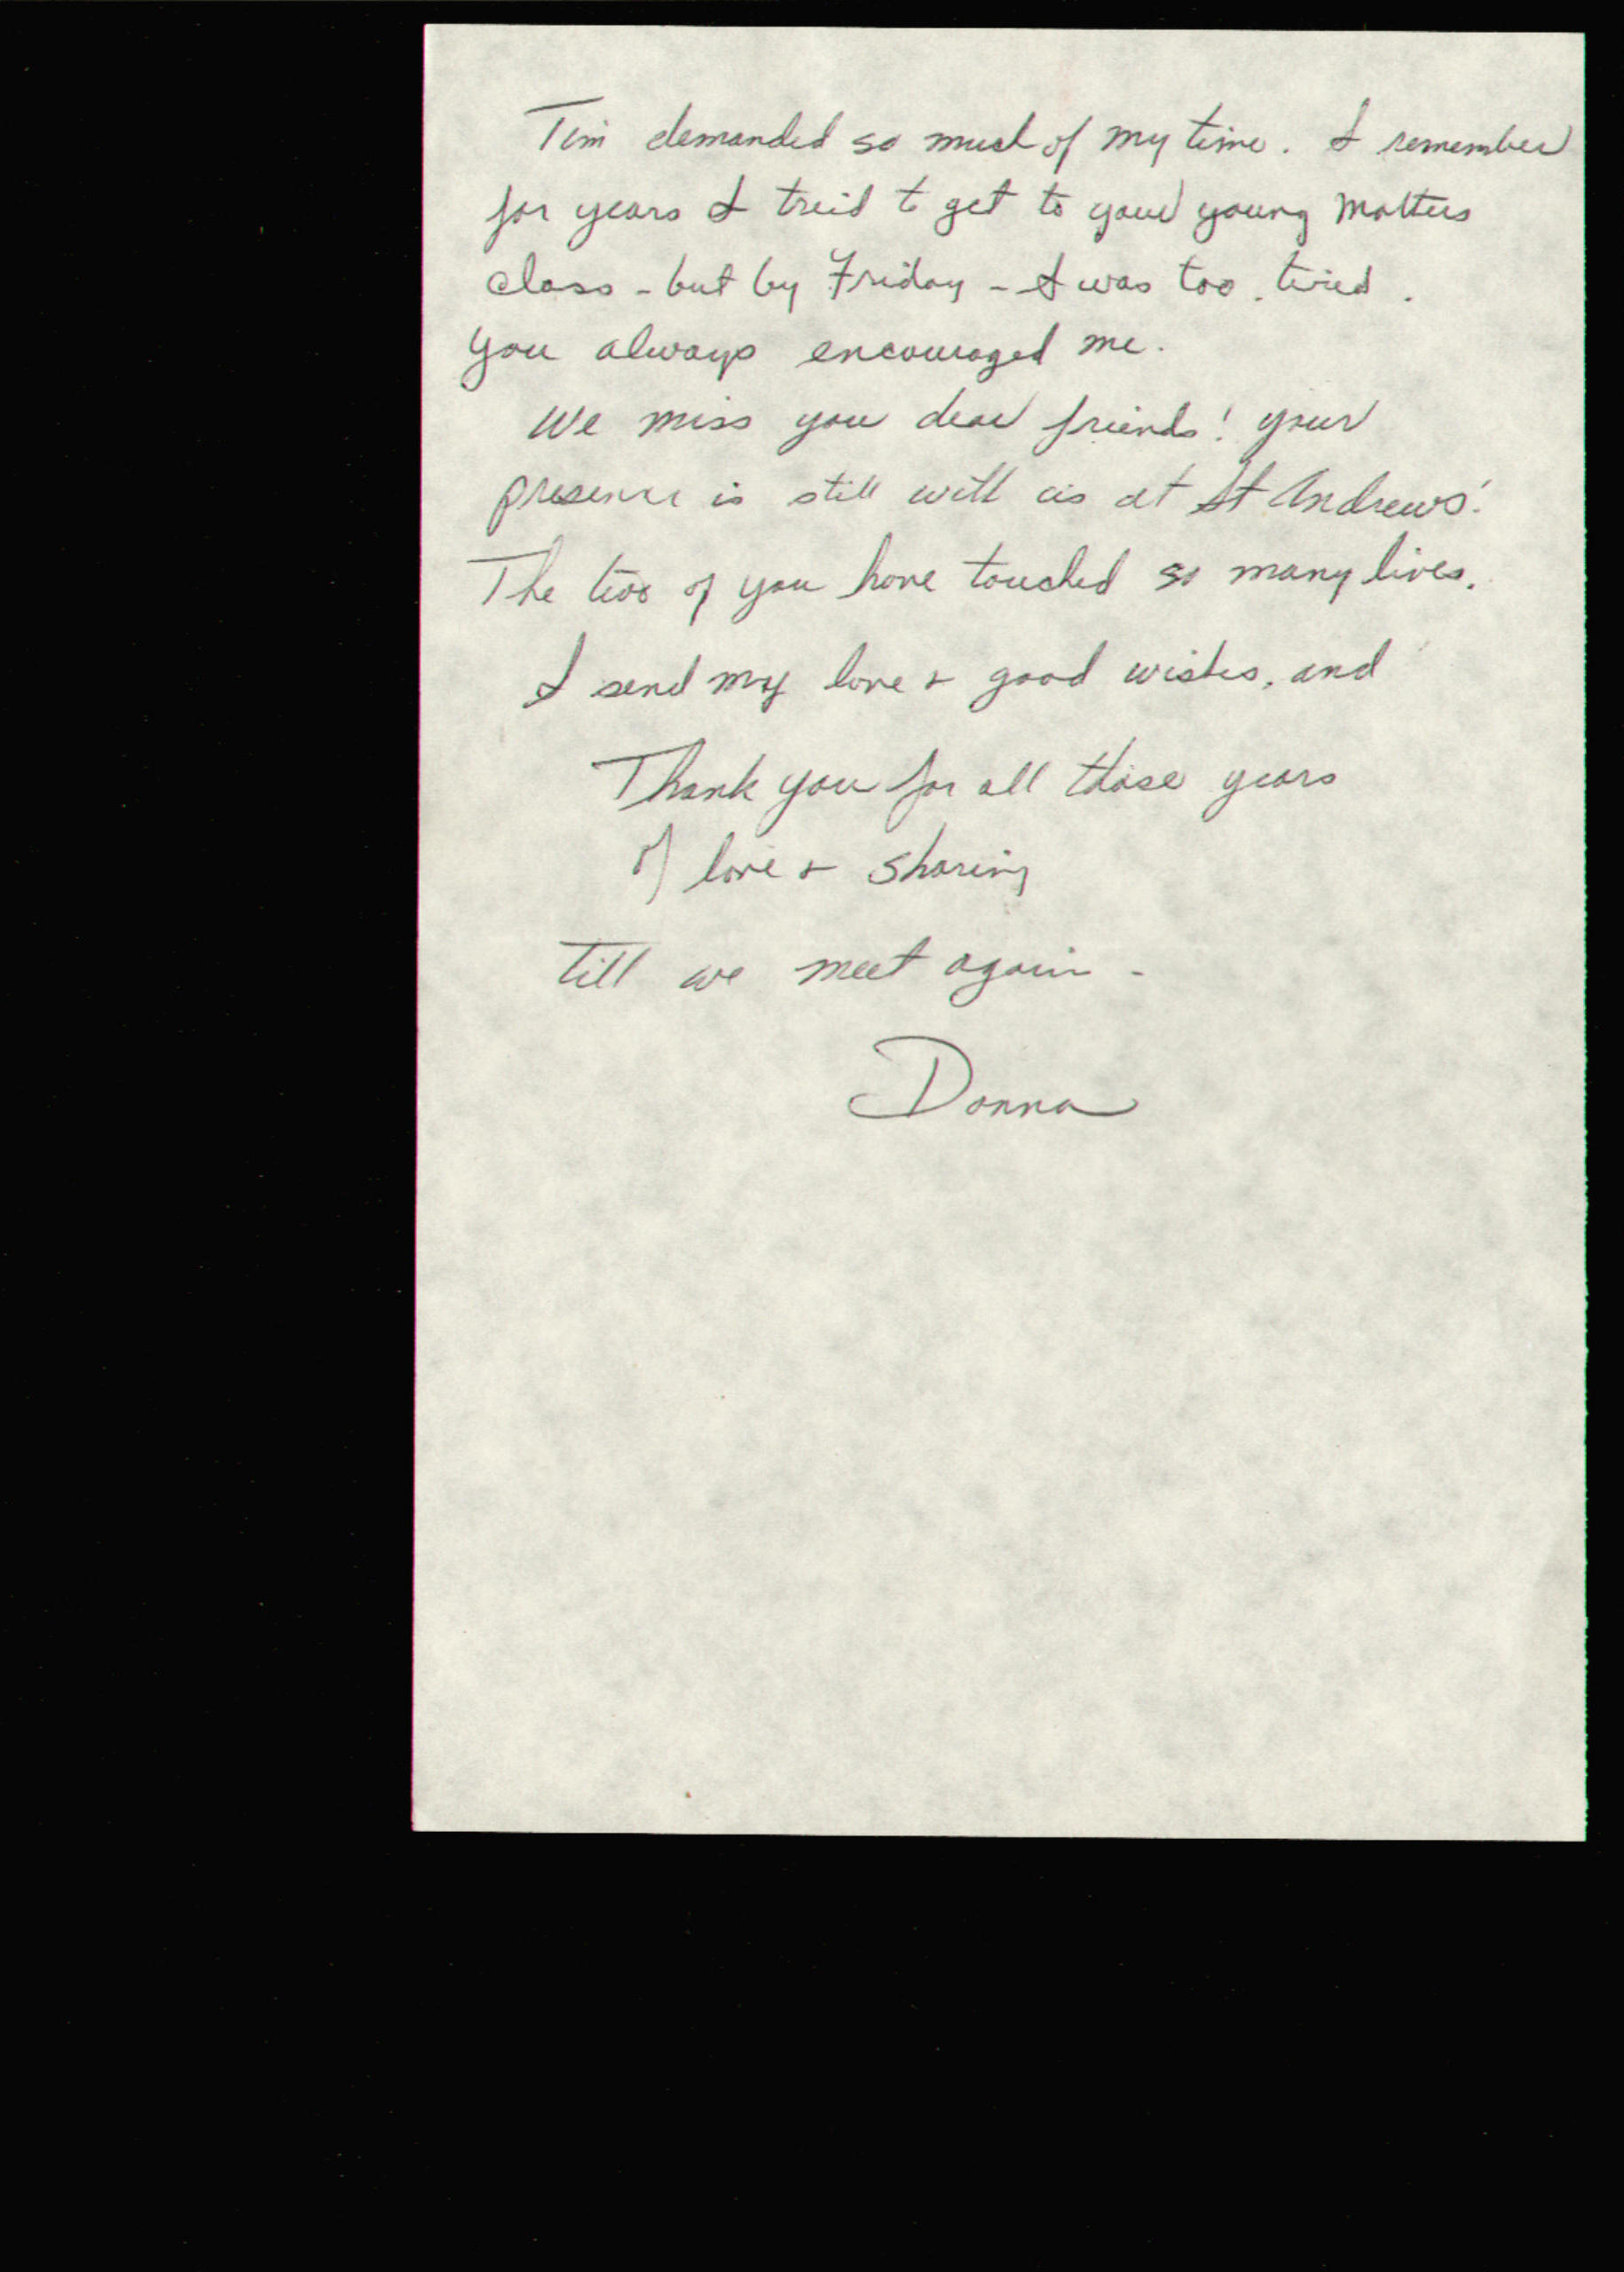 Tim demanded so much of my time. I remember
for years I treid to get to your young Mothers
class - but by Friday - I was too tired.
You always encouraged me.
We miss you dear friends! Your
presence is still with us at St Andrews'.
The two of you have touched so many lives.
I send my love + good wishes, and
Thank you for all those years
of love + sharing
Till we meet again -
Donna